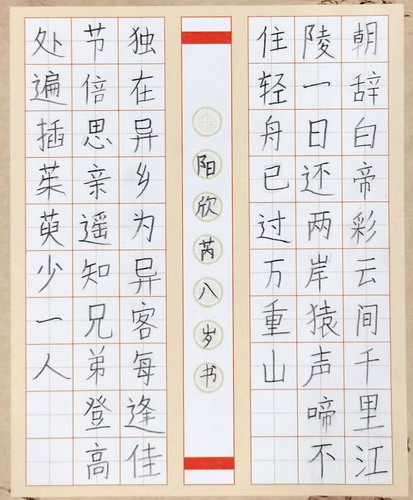 朝辞白帝彩云间千里江
陵一日还两岸猿声啼不
住轻舟已过万重山
阳欣芮八岁书
独在异乡为异客每逢佳
节倍思亲遥知兄弟登高
处遍插茱萸少一人